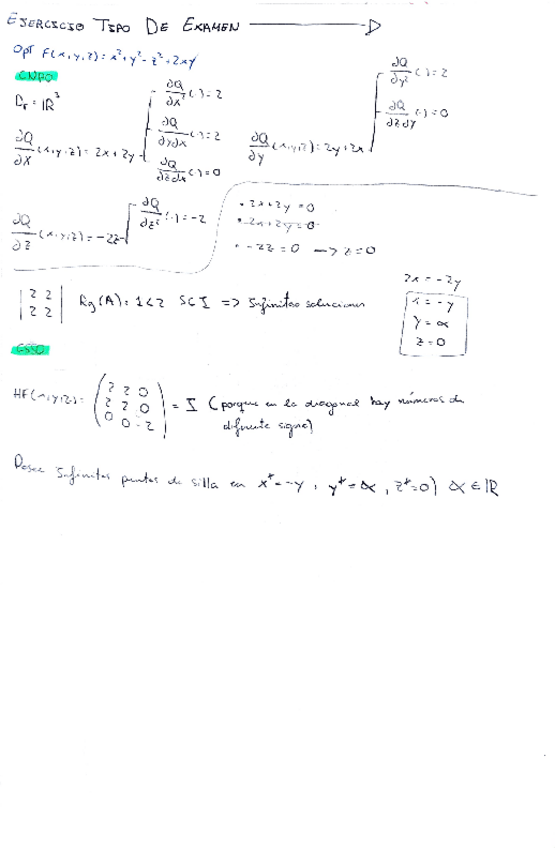 EJERCICIO TIPO DE EXAMEN
Opt F(x,y,z)=x²+y²-z²+2xy
CNPO
Dr=ℝ³
∂Q/∂x (x,y,z)=2x+2y
∂Q/∂x² (·)=2
∂Q/∂y∂x (·)=2
∂Q/∂z∂x (·)=0
∂Q/∂y (x,y,z)=2y+2x
∂Q/∂y² (·)=2
∂Q/∂z∂y (·)=0
∂Q/∂z (x,y,z)=-2z
∂Q/∂z² (·)=-2
• 2x+2y=0
• 2x+2y=0
• -2z=0 → z=0
|2 2|
|2 2|
Rg(A)=1<2 SCI => Infinitas soluciones
2x=-2y
x=-y
y=α
z=0
CSSO
HF(x,y,z)=
(2 2 0)
(2 2 0)
(0 0 -2)
= I (porque en la diagonal hay números de
diferente signo)
Posee infinitos puntos de silla en x*=-y, y*=α, z*=0) α∈ℝ